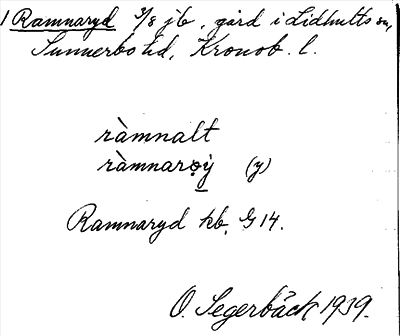 1 Ramnaryd 3/8 jb, gård i Lidhults sn,
Sunnerbo hd, Kronob. l.
ràmnalt
ràmnarỳ (y)
Ramnaryd kb, G 14.
O. Segerbäck 1939.